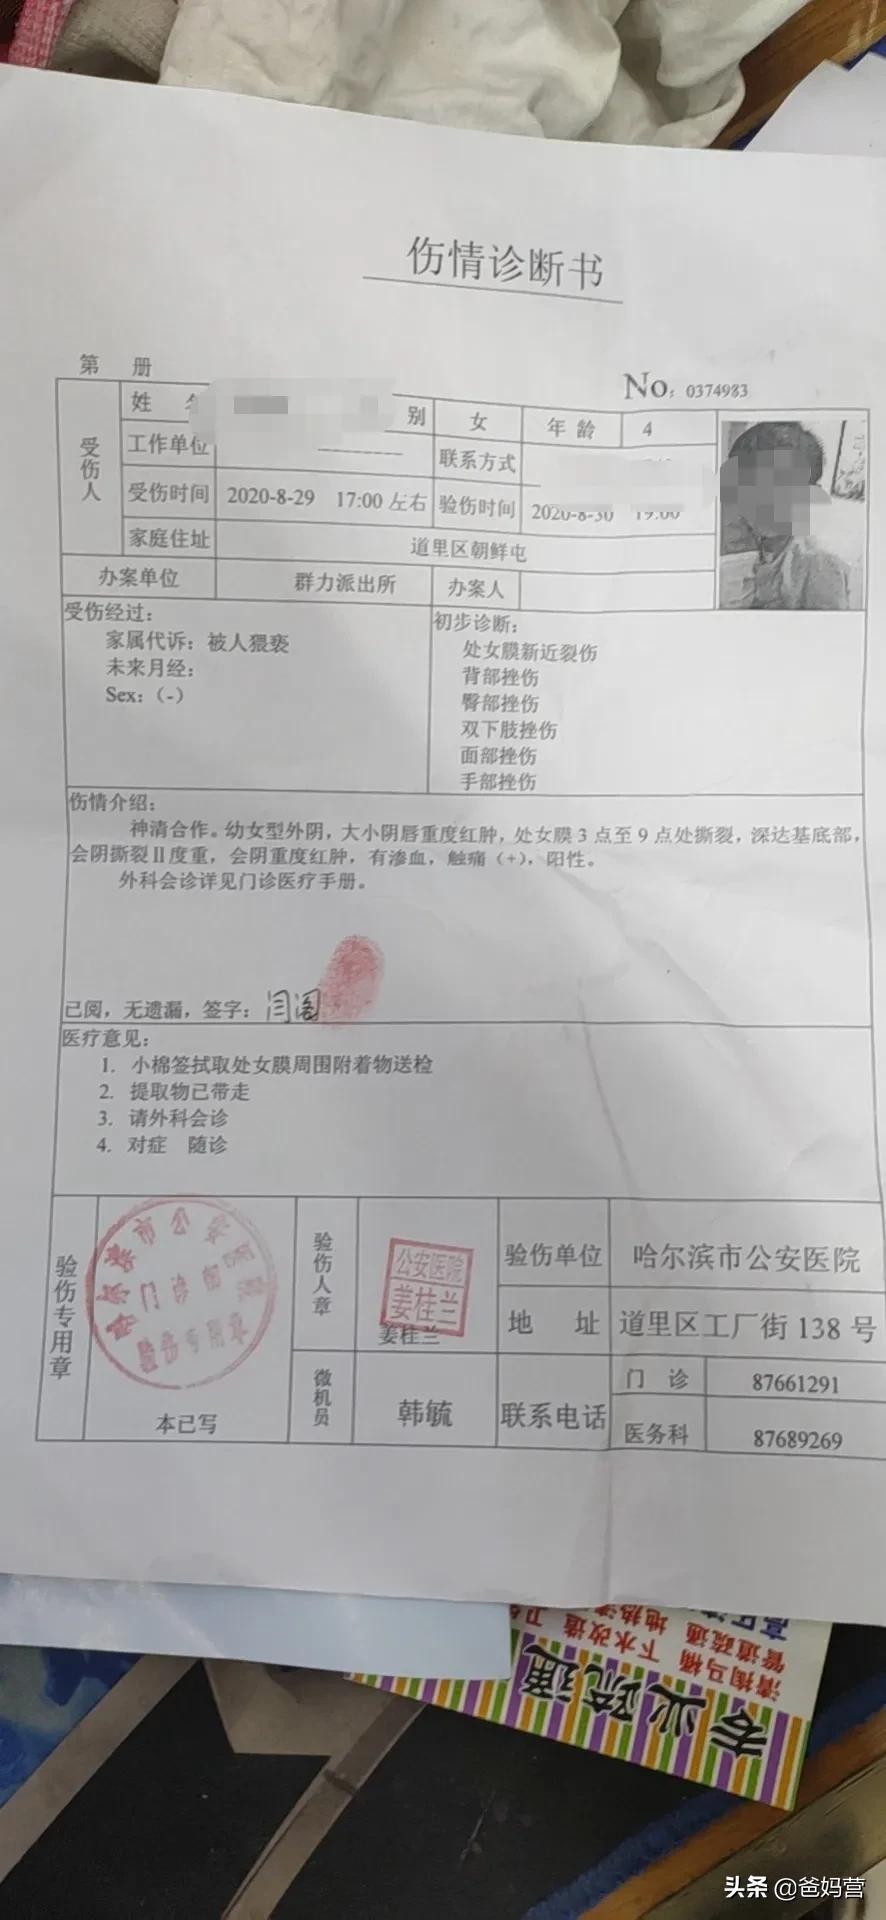 伤情诊断书
第 册
No: 0374983
受伤人
姓
别 女 年龄 4
工作单位
联系方式
受伤时间 2020-8-29 17:00 左右 验伤时间 2020-8-30 19:00
家庭住址 道里区朝鲜屯
办案单位 群力派出所 办案人
受伤经过:
家属代诉:被人猥亵
未来月经:
Sex:(-)
初步诊断:
处女膜新近裂伤
背部挫伤
臀部挫伤
双下肢挫伤
面部挫伤
手部挫伤
伤情介绍:
神清合作。幼女型外阴,大小阴唇重度红肿,处女膜 3 点至 9 点处撕裂,深达基底部,
会阴撕裂Ⅱ度重,会阴重度红肿,有渗血,触痛(+),阳性。
外科会诊详见门诊医疗手册。
已阅,无遗漏,签字:
医疗意见:
1. 小棉签拭取处女膜周围附着物送检
2. 提取物已带走
3. 请外科会诊
4. 对症 随诊
验伤专用章
验伤专用章
本已写
验伤人章
公安医院
姜桂兰
姜桂兰
微机员
韩毓
验伤单位 哈尔滨市公安医院
地 址 道里区工厂街 138 号
联系电话
门 诊 87661291
医务科 87689269
专业疏通
清掏马桶 下水改造
管道疏通
头条 @爸妈营